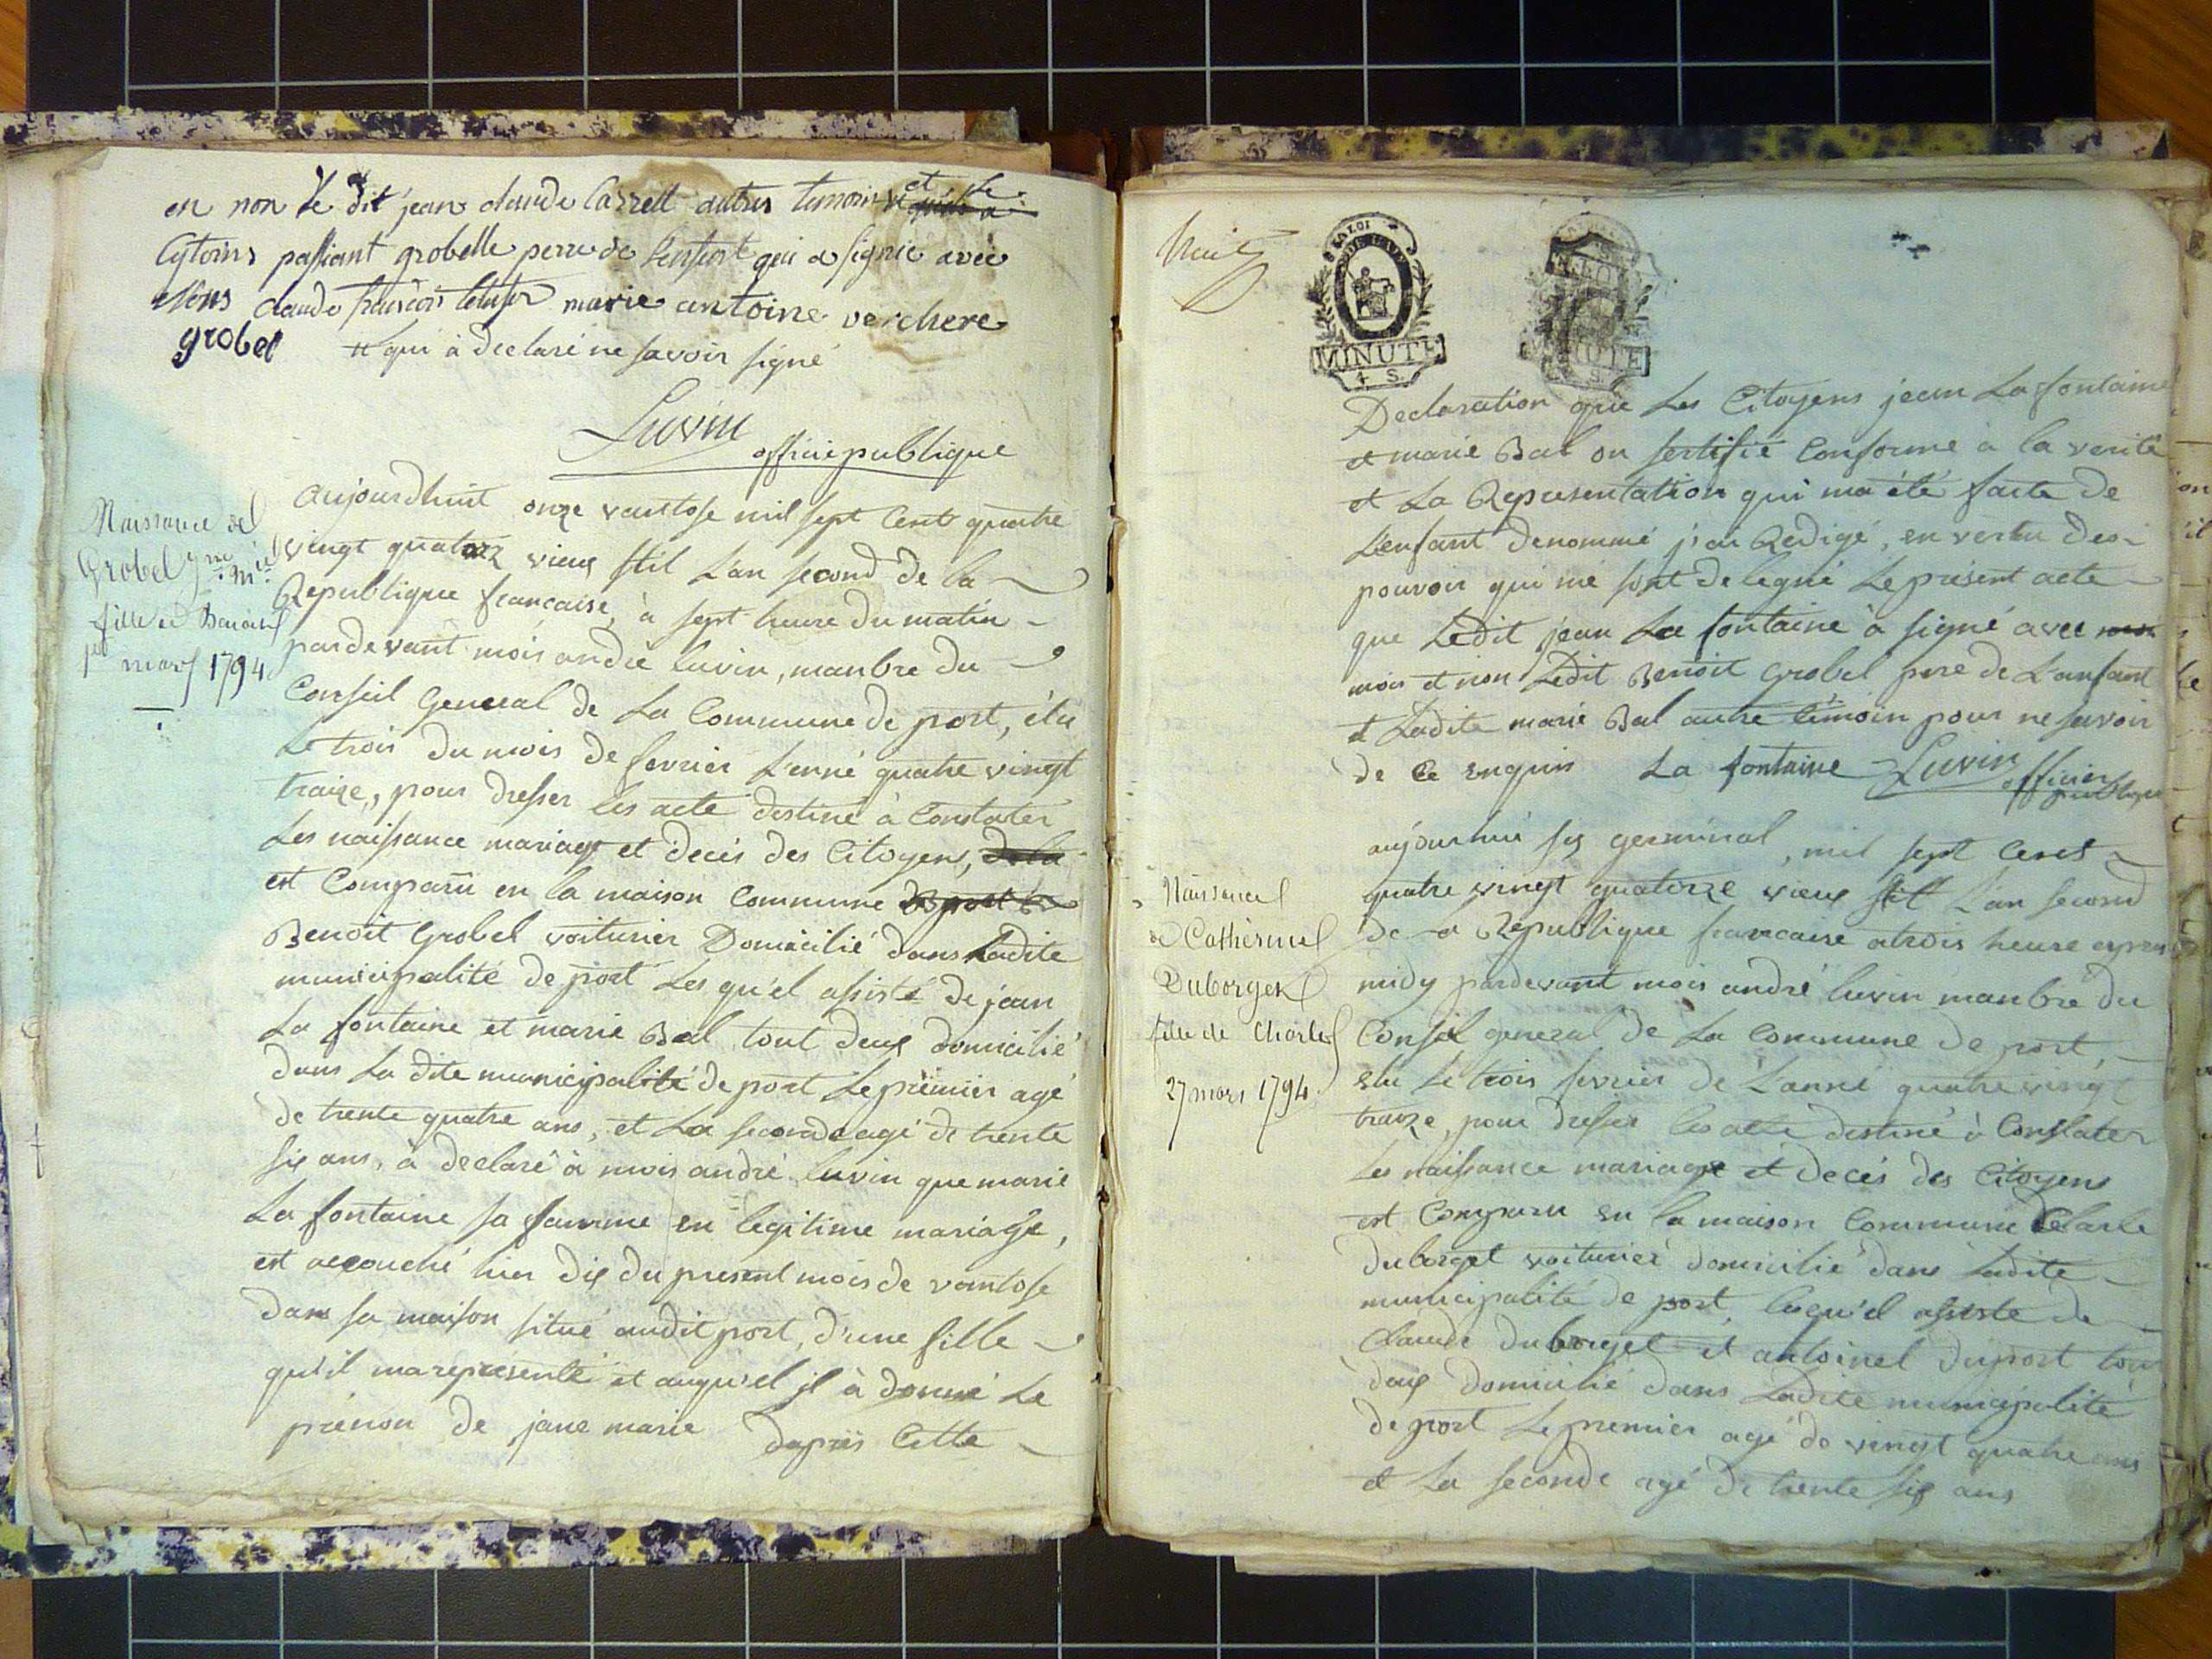 en non Le dit jean claude Carrell autres temoin et Le
Cytoins passiant grobelle perre de Lenfant qui a signie avec
Nous claude francois marie antoine verchere
grobel et qui à declaré ne savoir signé
Luvin
officie publique
Naissance de
Grobel jne Mie
fille de Benoist
1er mars 1794
aujourdhuit onze vantose mil sept Cent quatre
vingt quatorz vieux stil L'an second de la
Republique francaise, à sept heure du matin
pardevant mois andré luvin, manbre du
Conseil General de La Commune de port, élu
Le trois du mois de fevrier L'enné quatre vingt
traize, pour dresser les acte destiné à Constater
Les naissance mariage et decés des Citoyens, de la
est Comparu en la maison Commune de port
Benoit Grobel voiturier Domicilié dans Ladite
municipalité de port Les qu'el assisté de jean
La fontaine et marie Bal tout deux domicilié
dans La dite municipalité de port Le premier agé
de trente quatre ans, et La seconde agé de trente
six ans, à declaré à mois andré luvin que marie
La fontaine sa famme en legitime mariage,
est accouché hier dix du present mois de vantose
dans sa maison situé audit port, d'une fille
qu'il ma representé et auqu'el il à donné Le
prénon de jane marie dapriès Cette
huit
LA LOI
MINUTE
4 S.
Declaration que Les Citoyens jean La fontaine
et marie Bal on sertifié Conforme à la verité
et La Representation qui ma été faite de
L'enfant denommé j'ai Redigé, en vertu des
pouvoir qui me sont delegué Le présent acte
que Ledit jean La fontaine à signé avec
mois et non Ledit Benoit Grobel pere de L'anfant
et Ladite marie Bal autre témoin pour ne savoir
de Ce enquis La fontaine Luvin officier
publique
Naissance
de Catherine
Duborget
fille de Charles
27 mars 1794.
aujourhui six germinal, mil sept Cent
quatre vingt quatorze vieux stil L'an second
de La Republique francaise a trois heure apres
midy pardevant mois andré luvin manbre du
Conseil general de La Commune de port,
elu Le trois fevrier de L'anné quatre vingt
traize, pour dresser les acte destiné à Constater
Les naissance mariage et decés des Citoyens
est Comparu en la maison Commune Charle
duborget voiturier domicilié dans Ladite
municipalité de port, lesqu'el assisté de
Claude duborget et antoinet duport tout
deux Domicilié dans Ladite municipalité
de port Le premier agé de vingt quatre ans
et La seconde agé de trente six ans